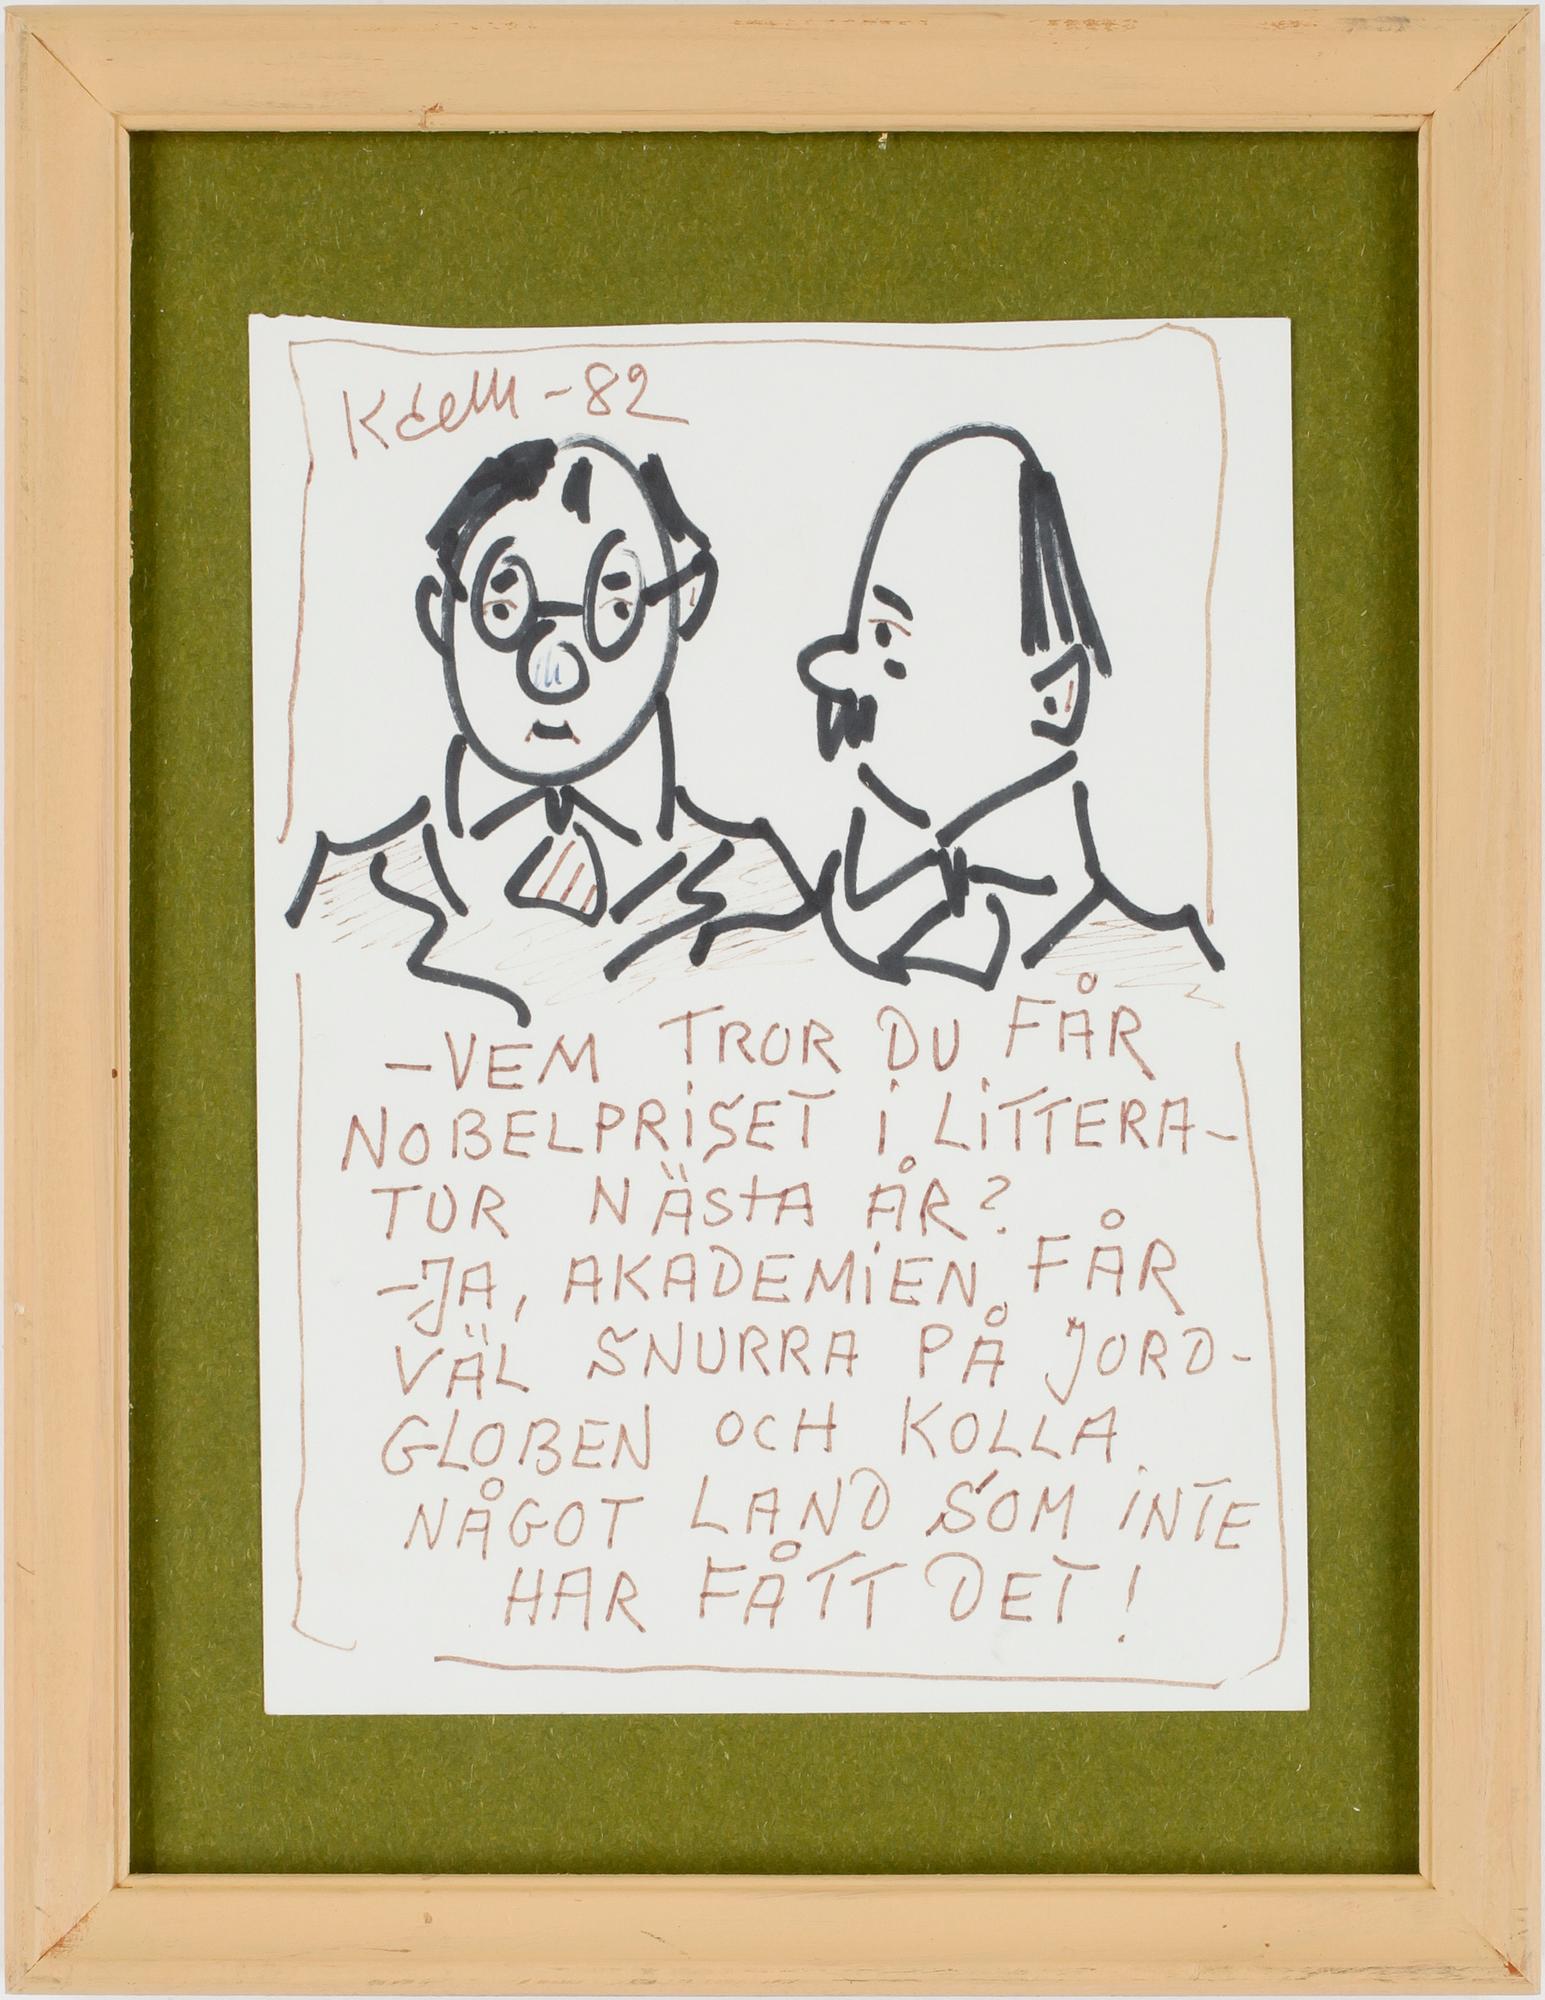 -82
-VEM TROR DU FÅR
NOBELPRISET i LiTTERA-
TUR NÄStA ÅR?
-JA, AKADEMiEN FÅR
VÄL SNURRA PÅ JORD-
GLOBEN OCH KOLLA
NÅGOT LAND SOM iNTE
HAR FÅTT DET!